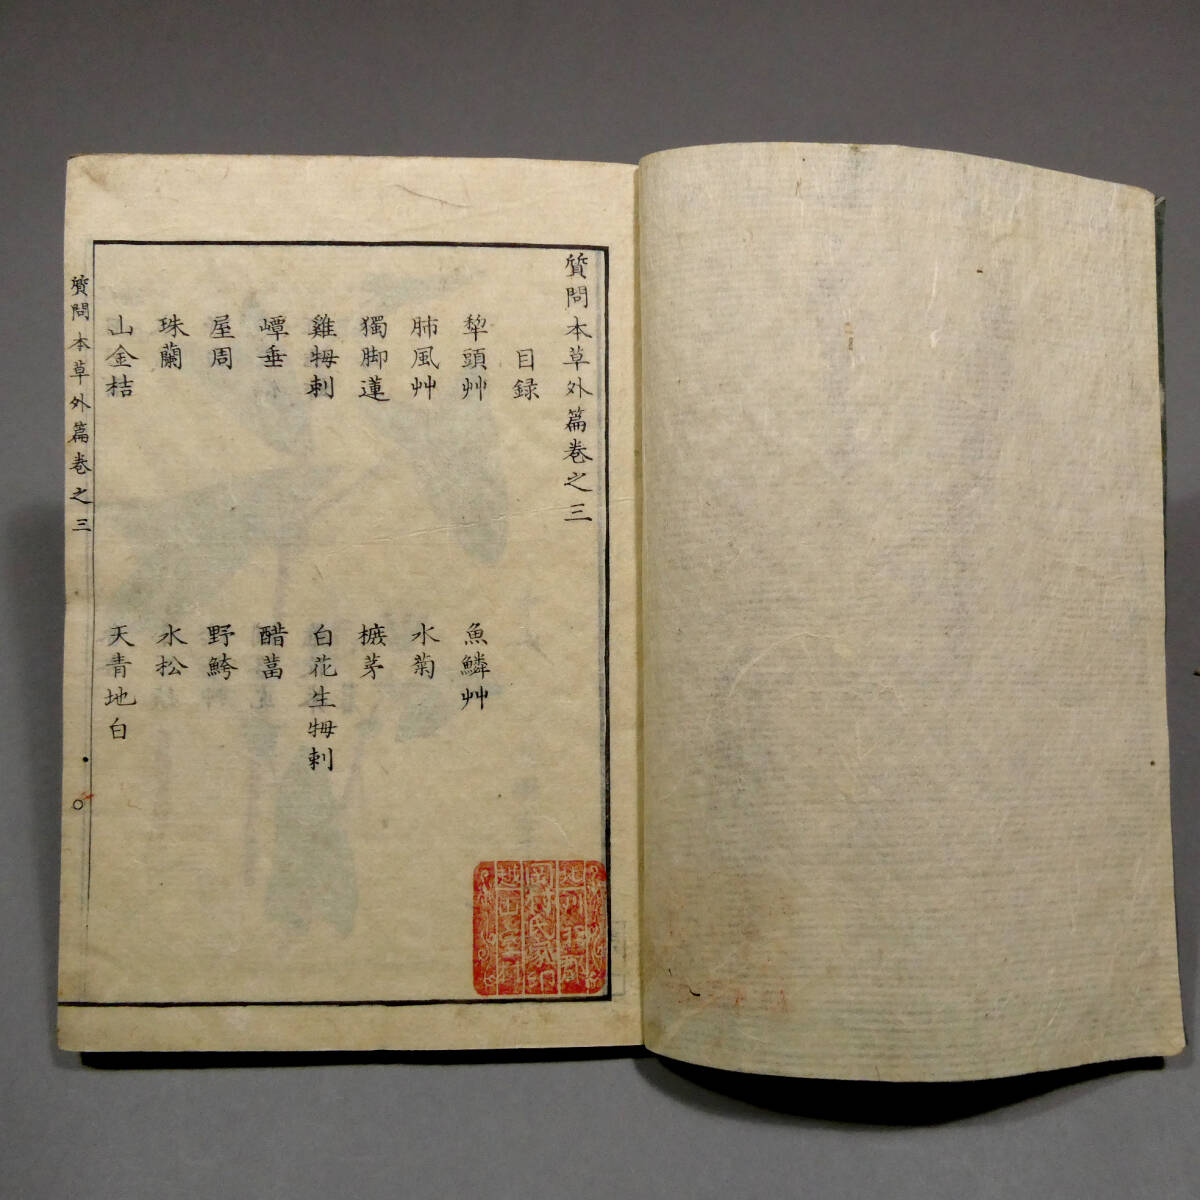 質問本草外篇巻之三
目録
犂頭艸
魚鱗艸
肺風艸
水菊
獨脚蓮
茅
雞𤘛刺
白花生𤘛刺
嶂垂
醋菖
屋周
野鮬
珠蘭
水松
山金桔
天青地白
質問本草外篇巻之三
岡村氏家印